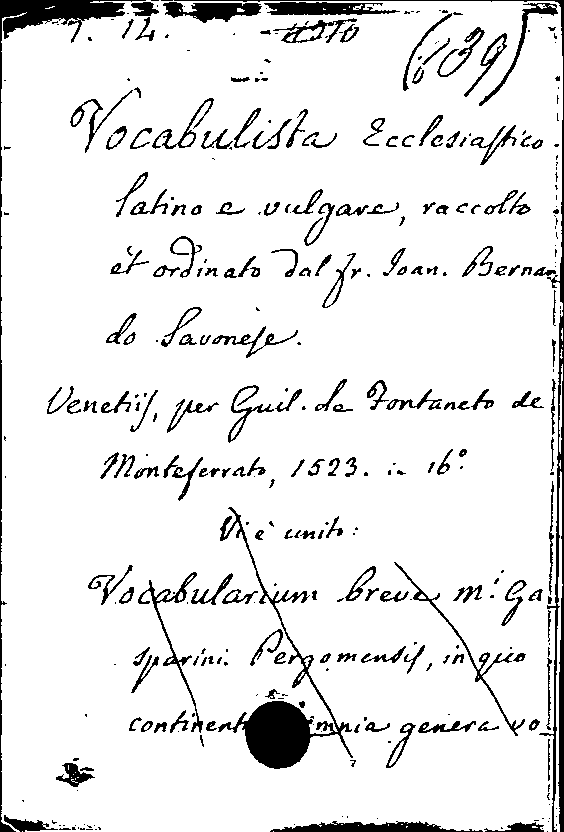 7. 14.
(839)
Vocabulista Ecclesiastico
latino e vulgare, raccolto
et ordinato dal fr. Ioan. Bernar
do Savonese.
Venetiis, per Guil. de Fontaneto de
Monteferrato, 1523. in 16°.
Vi è unito:
Vocabularium breve m.i Ga
sparini Pergomensis, in quo
omnia genera vo